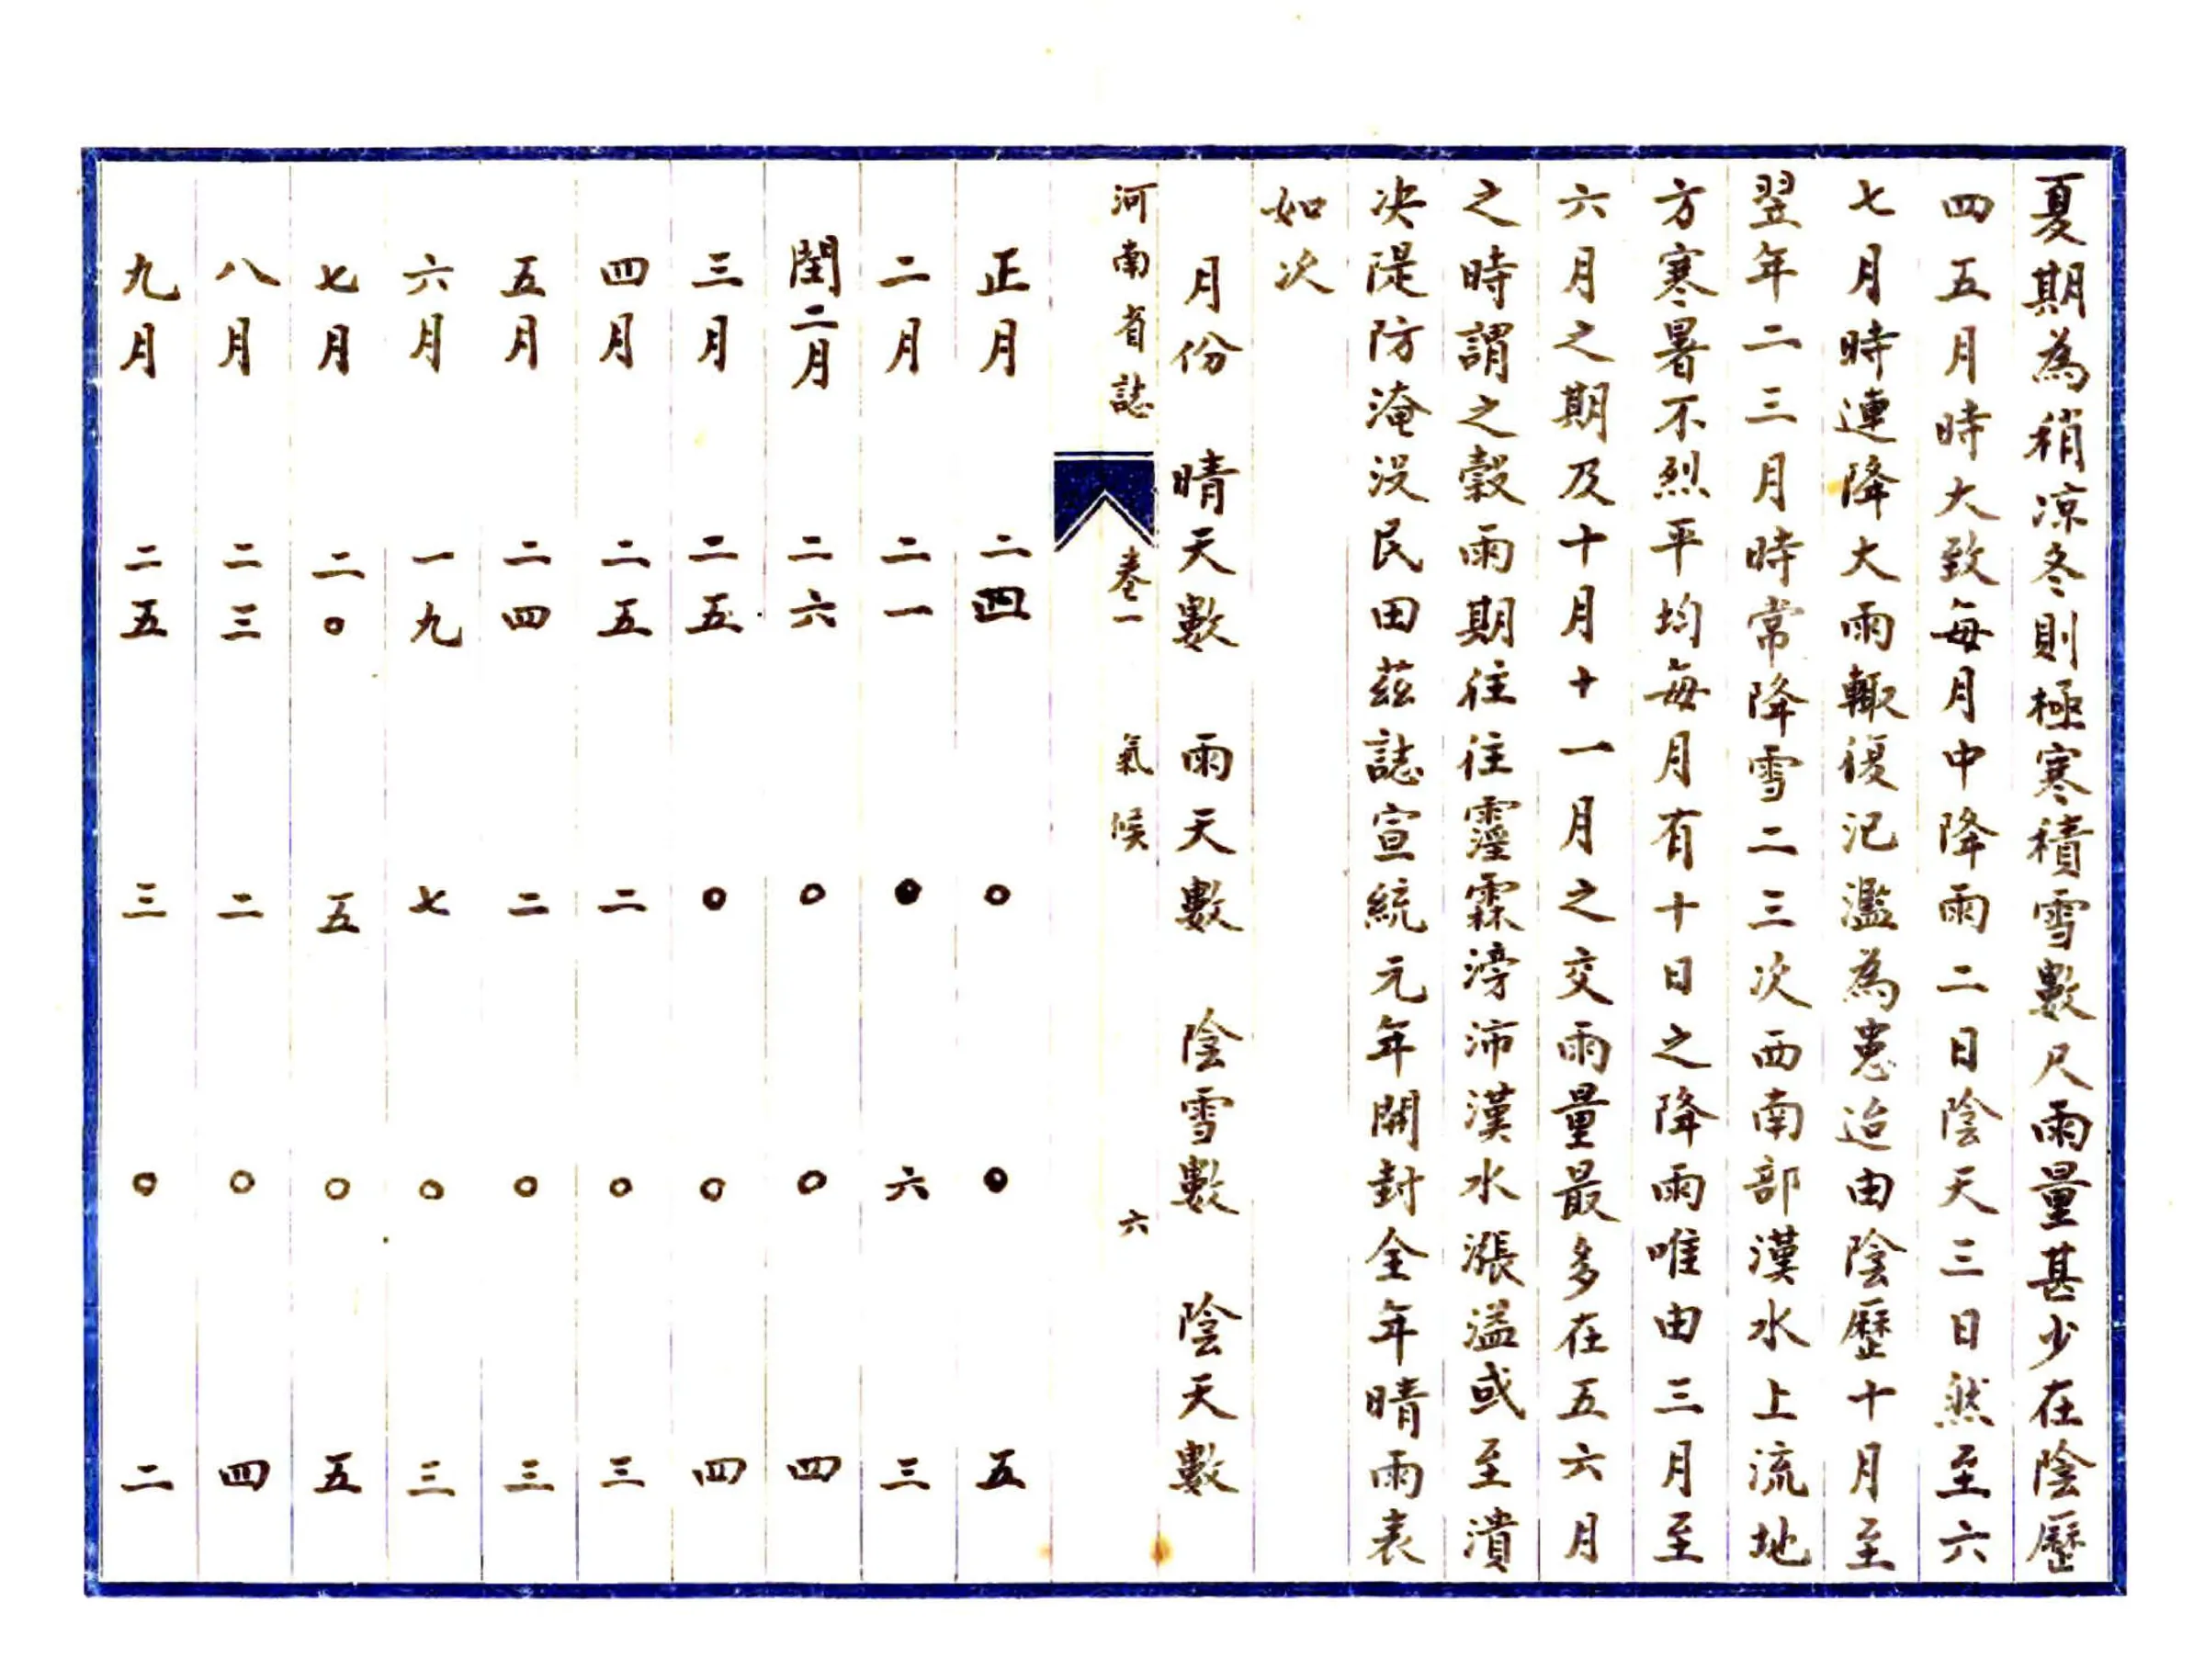 夏期為稍凉冬則極寒積雪數尺雨量甚少在陰歷
四五月時大致每月中降雨二日陰天三日然至六
七月時連降大雨輙復汜濫為患迨由陰歷十月至
翌年二三月時常降雪二三次西南部漢水上流地
方寒暑不烈平均每月有十日之降雨唯由三月至
六月之期及十月十一月之交雨量最多在五六月
之時謂之穀雨期往往霪霖滂沛漢水漲溢或至潰
决隄防淹没民田茲誌宣統元年開封全年晴雨表
如次
月份 晴天數 雨天數 陰雪數 陰天數
河南省誌 卷一 氣候 六
正月 二四 〇 〇 五
二月 二一 〇 六 三
閏二月 二六 〇 〇 四
三月 二五 〇 〇 四
四月 二五 二 〇 三
五月 二四 二 〇 三
六月 一九 七 〇 三
七月 二〇 五 〇 五
八月 二三 二 〇 四
九月 二五 三 〇 二